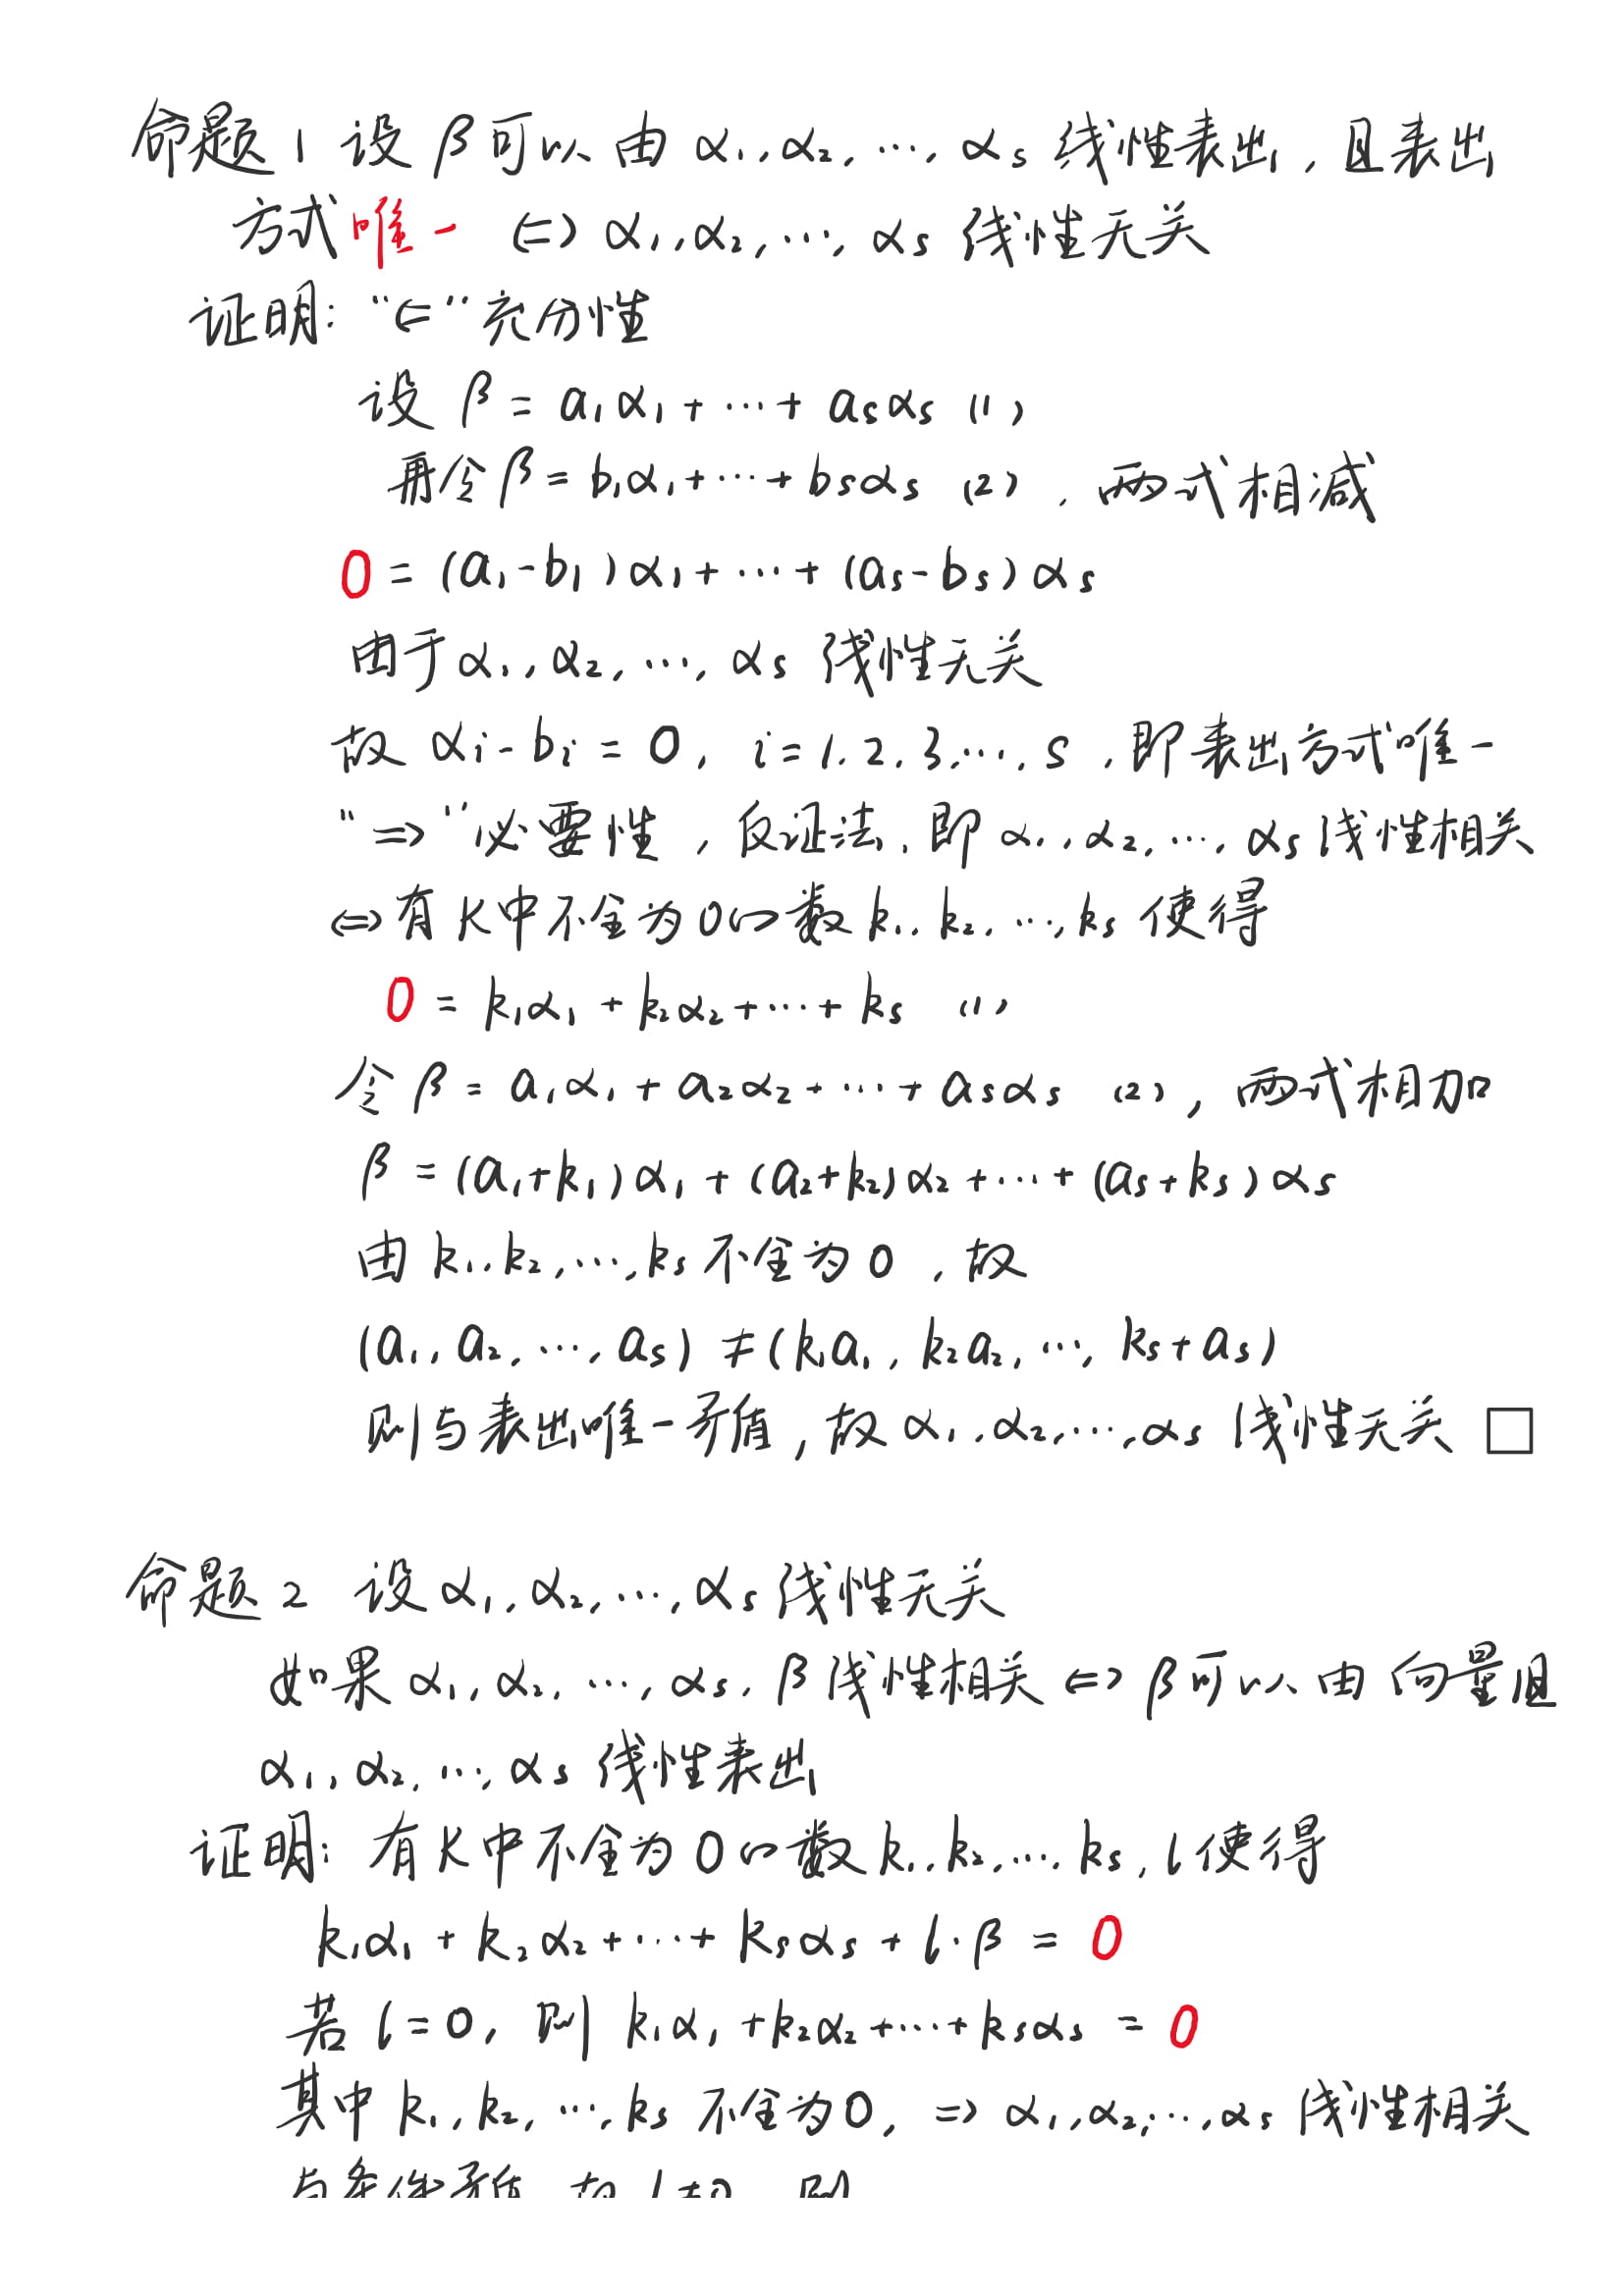 命题1 设 β可以由 α₁,α₂,…,αs 线性表出,且表出
方式唯一 ⇔ α₁,α₂,…,αs 线性无关
证明: “⇐”充分性
设 β = a₁α₁ + … + asαs (1)
再令β = b₁α₁ + … + bsαs (2) , 两式相减
0 = (a₁-b₁)α₁ + … + (as-bs)αs
由于α₁,α₂,…,αs 线性无关
故 αi - bi = 0, i = 1.2.3.…,s ,即表出方式唯一
“⇒”必要性 ,反证法,即 α₁,α₂,…,αs线性相关
⇔有K中不全为0的数 k₁,k₂,…,ks 使得
0 = k₁α₁ + k₂α₂ + … + ks (1)
令 β = a₁α₁ + a₂α₂ + … + asαs (2), 两式相加
β = (a₁+k₁)α₁ + (a₂+k₂)α₂ + … + (as+ks)αs
由 k₁,k₂,…,ks不全为0 ,故
(a₁,a₂,…,as) ≠ (k₁a₁, k₂a₂,…, ks+as)
则与表出唯一矛值,故 α₁,α₂,…,αs 线性无关 □
命题2 设α₁,α₂,…,αs线性无关
如果 α₁,α₂,…,αs,β 线性相关 ⇔ β可以由向量组
α₁,α₂,…,αs 线性表出
证明: 有K中不全为0的数 k₁,k₂,…,ks,l使得
k₁α₁ + k₂α₂ + … + ksαs + l·β = 0
若 l = 0, 则 k₁α₁ + k₂α₂ + … + ksαs = 0
其中 k₁,k₂,…,ks 不全为0, ⇒ α₁,α₂,…,αs 线性相关